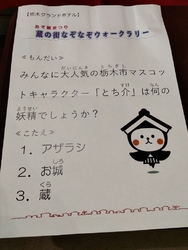 【栃木グランドホテル】
あそ雛まつり
蔵の街なぞなぞウォークラリー
≪もんだい≫
みんなに大人気の栃木市マスコッ
トキャラクター「とち介」は何の
妖精でしょうか?
≪こたえ≫
1. アザラシ
2. お城
3. 蔵